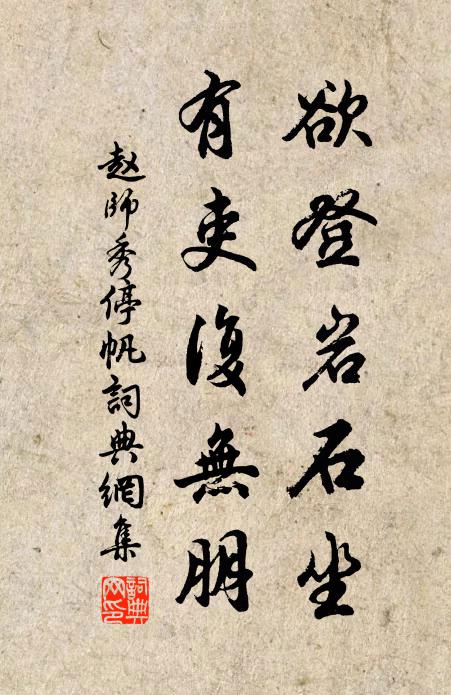 欲登岩石坐
有吏復無朋
赵師秀停帆詞典網集
詞典网印